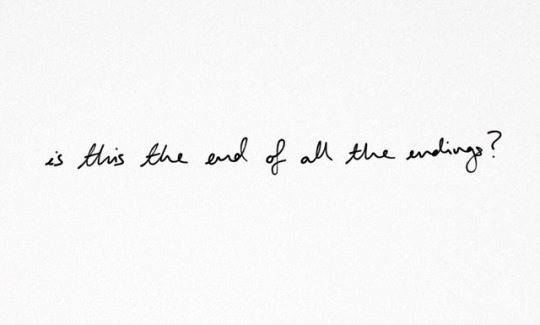 is this the end of all the endings?